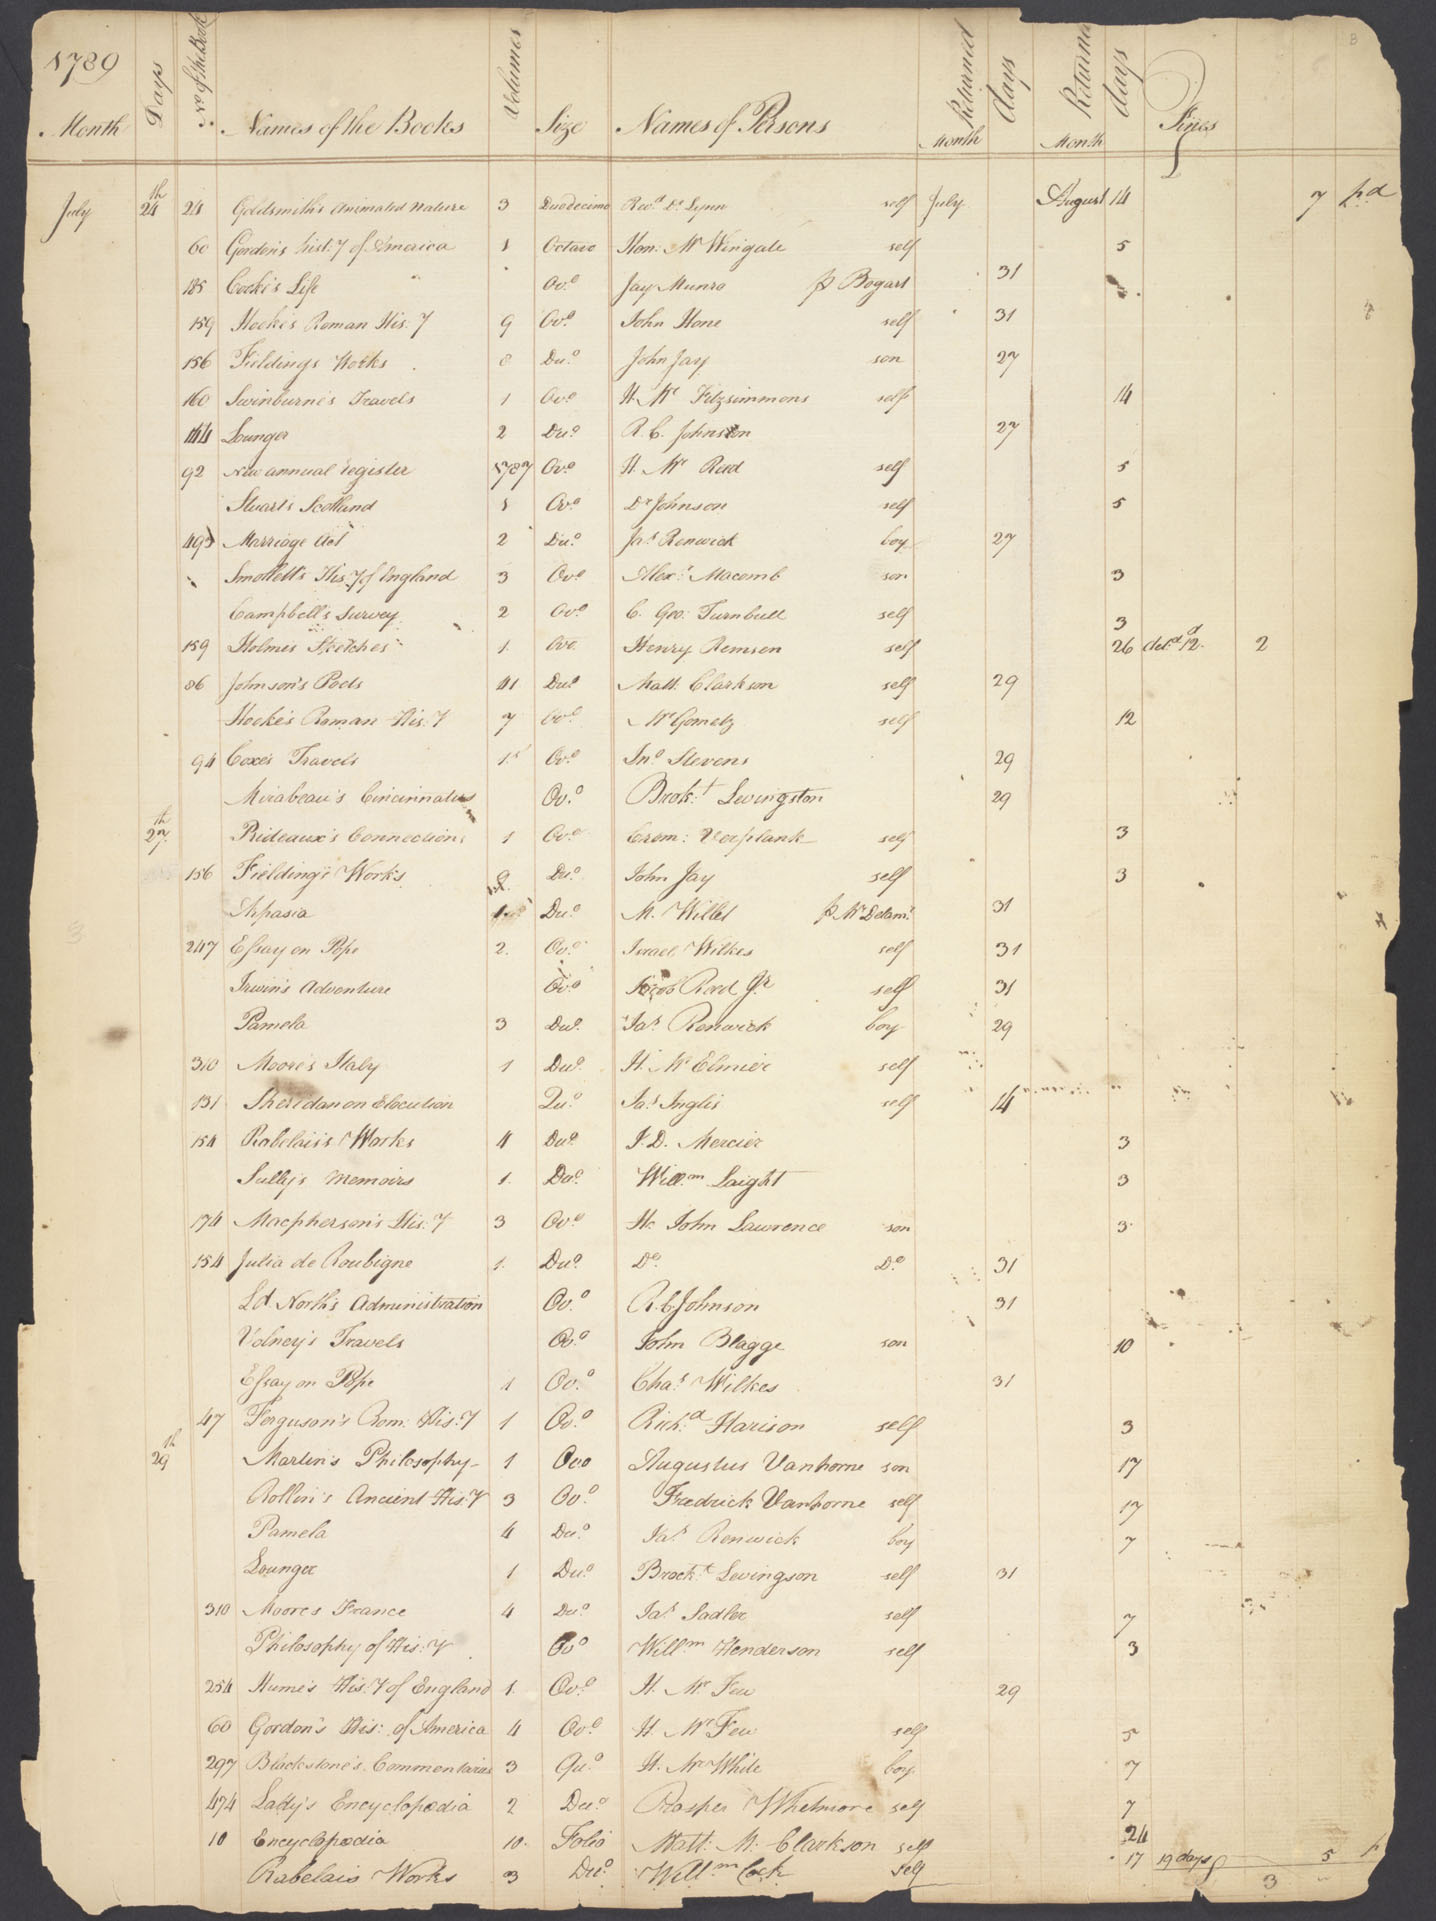 1789
Month Days No of the Book Names of the Books Volumes Size Names of Persons Returned Month days Returned Month days Fines
July 24th 24 Goldsmith's Animated Nature 3 Duodecimo Revd Dr Lynn self July August 14 7 pd
60 Gordon's hist:y of America 1 Octavo Hon: Mr Wingate self 5
185 Cook's Life Ovo Jay Munro p Bogart 31
159 Hooke's Roman His:y 9 Ovo John Hone self 31
156 Fieldings Works 8 Duo John Jay son 27
160 Swinburne's Travels 1 Ovo H. Mr Fitzsimmons self 14
144 Lounger 2 Duo R. C. Johnson 27
92 New annual register 1787 Ovo H. Mr Read self 5
Stuart's Scotland 1 Ovo Dr Johnson self 5
493 Marriage Act 2 Duo Jas Renwick boy 27
Smollett's His:y of England 3 Ovo Alexr Macomb son 3
Campbell's Survey 2 Ovo C. Geo: Turnbull self 3
159 Holmes Sketches 1 Ovo Henry Remsen self 26 12 2
86 Johnson's Poets 41 Duo Matt. Clarkson self 29
Hooke's Roman His:y 7 Ovo Mr Gometz self 12
94 Coxe's Travels 1st Ovo Jno Stevens 29
Mirabeau's Cincinnatus Ovo Brok:t Levingston 29
27th Prideaux's Connections 1 Ovo Crom: Verplank self 3
156 Fielding's Works 9 Duo John Jay self 3
Aspasia 1 Duo M. Willet p Mr Delamr 31
247 Essay on Pope 2. Ovo Israel Wilkes self 31
Irwin's Adventure Ovo Jacob Read Jr self 31
Pamela 3 Duo Jas Renwick boy 29
310 Moore's Italy 1 Duo H. Mr Elmier self
131 Sheridan on Elocution Quo Jas Inglis self 14
154 Rabelais's Works 4 Duo J. D. Mercier 3
Sully's Memoirs 1. Duo Willm Laight 3
174 Macpherson's His:y 3 Ovo H. John Lawrence son 3
154 Julia de Roubigne 1. Duo Do Do 31
Ld North's Administration Ovo R. C Johnson 31
Volney's Travels Ovo John Blagge son 10
Essay on Pope 1 Ovo Chas Wilkes 31
47 Ferguson's Rom: His:y 1 Ovo Richd Harison self 3
29th Martin's Philosophy 1 Ovo Augustus Vanhorne son 17
Rollin's Ancient His:y 3 Ovo Fredrick Vanhorne self 17
Pamela 4 Duo Jas Renwick boy 7
Lounger 1 Duo Brockt Levingson self 31
310 Moores France 4 Duo Jas Sadler self 7
Philosophy of His:y Ovo Willm Henderson self 3
254 Hume's His:y of England 1. Ovo H. Mr Few 29
60 Gordon's His: of America 4 Ovo H. Mr Few self 5
297 Blackstone's Commentaries 3 Quo H. Mr White boy 7
474 Lady's Encyclopædia 2 Duo Prosper Whetmore self 7
10 Encyclopædia 10. Folio Matt: M. Clarkson self 24
Rabelais Works 3 Duo Willm Cock Self 17 19 days 5 p
3